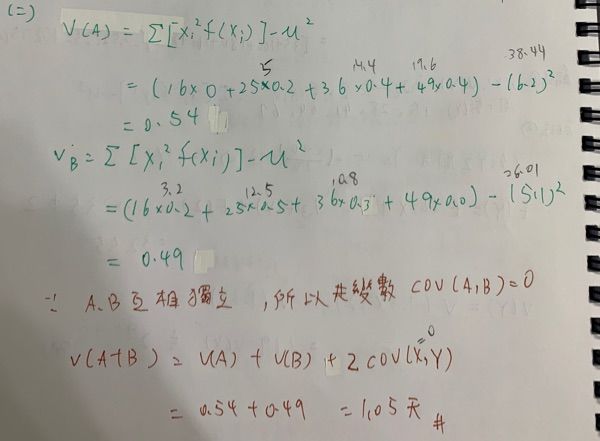 (二)
V(A) = Σ[xᵢ²f(xᵢ)] - μ²
5 14.4 19.6 38.44
= (16×0 + 25×0.2 + 36×0.4 + 49×0.4) - (6.2)²
= 0.54
V_B = Σ[xᵢ²f(xᵢ)] - μ²
3.2 12.5 10.8 26.01
= (16×0.2 + 25×0.5 + 36×0.3 + 49×0.0) - (5.1)²
= 0.49
∵ A、B互相獨立,所以共變數 COV(A,B)=0
=0
V(A+B) = V(A) + V(B) + 2COV(X,Y)
= 0.54 + 0.49 = 1.05天 #